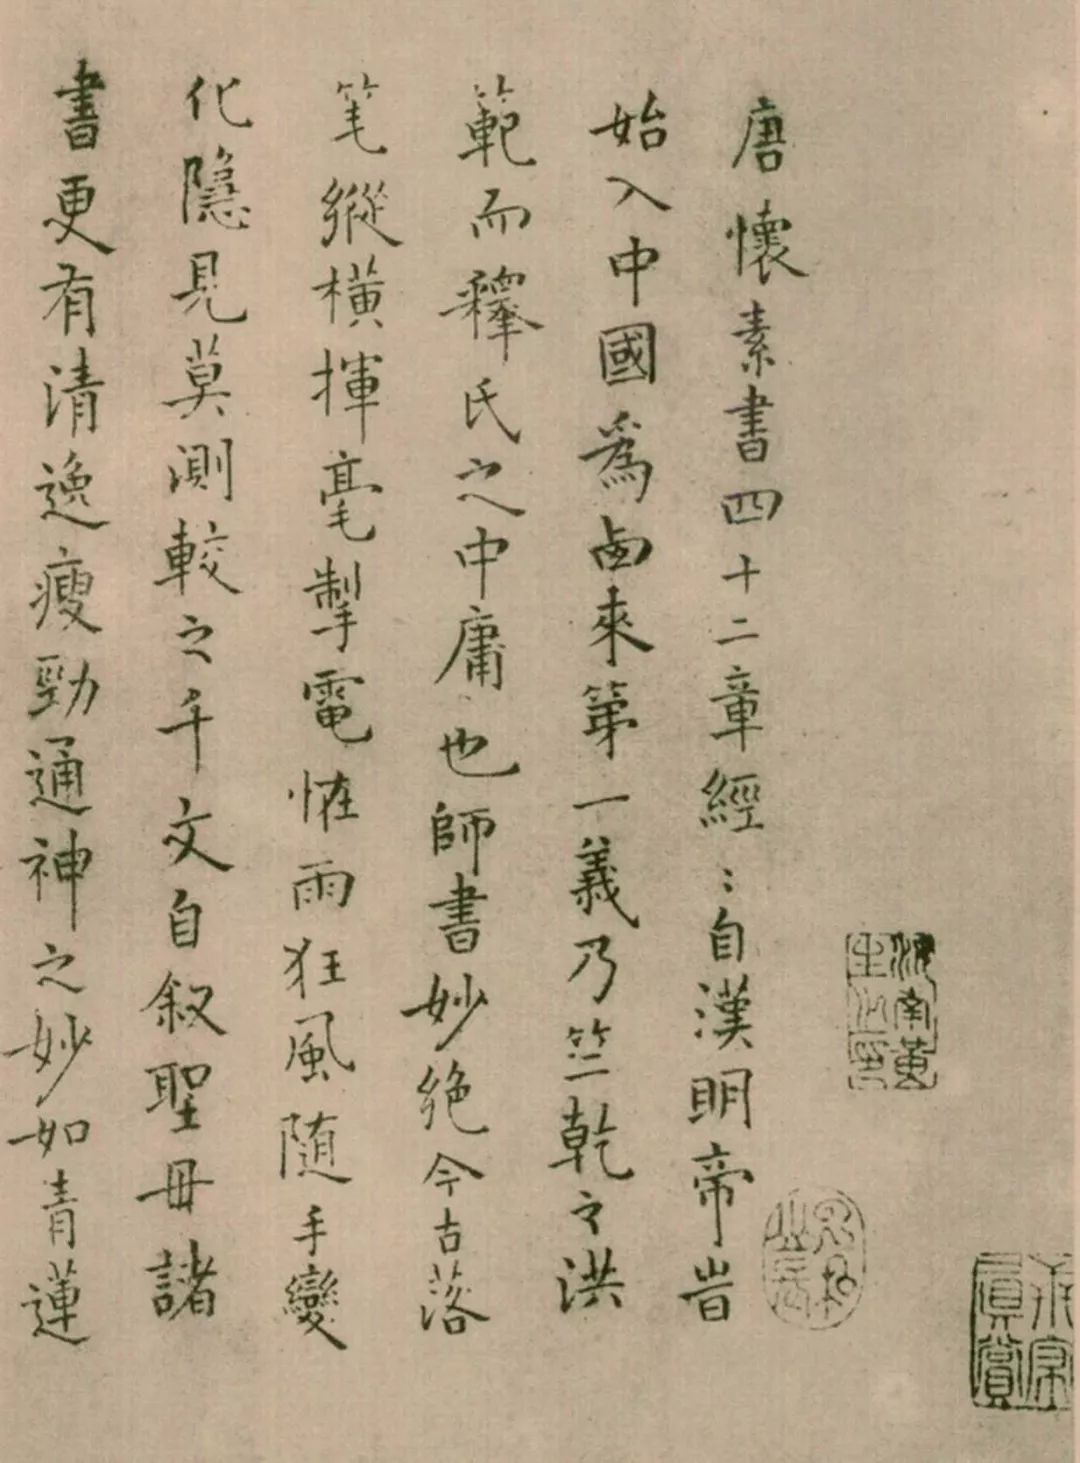 唐懷素書四十二章經:自漢明帝旹
始入中國為卣來第一義乃竺乾之洪
範而釋氏之中庸也師書妙絶今古落
笔縱橫揮毫掣電恠雨狂風随手變
化隱見莫測較之千文自叙聖母諸
書更有清逸瘦勁通神之妙如青蓮